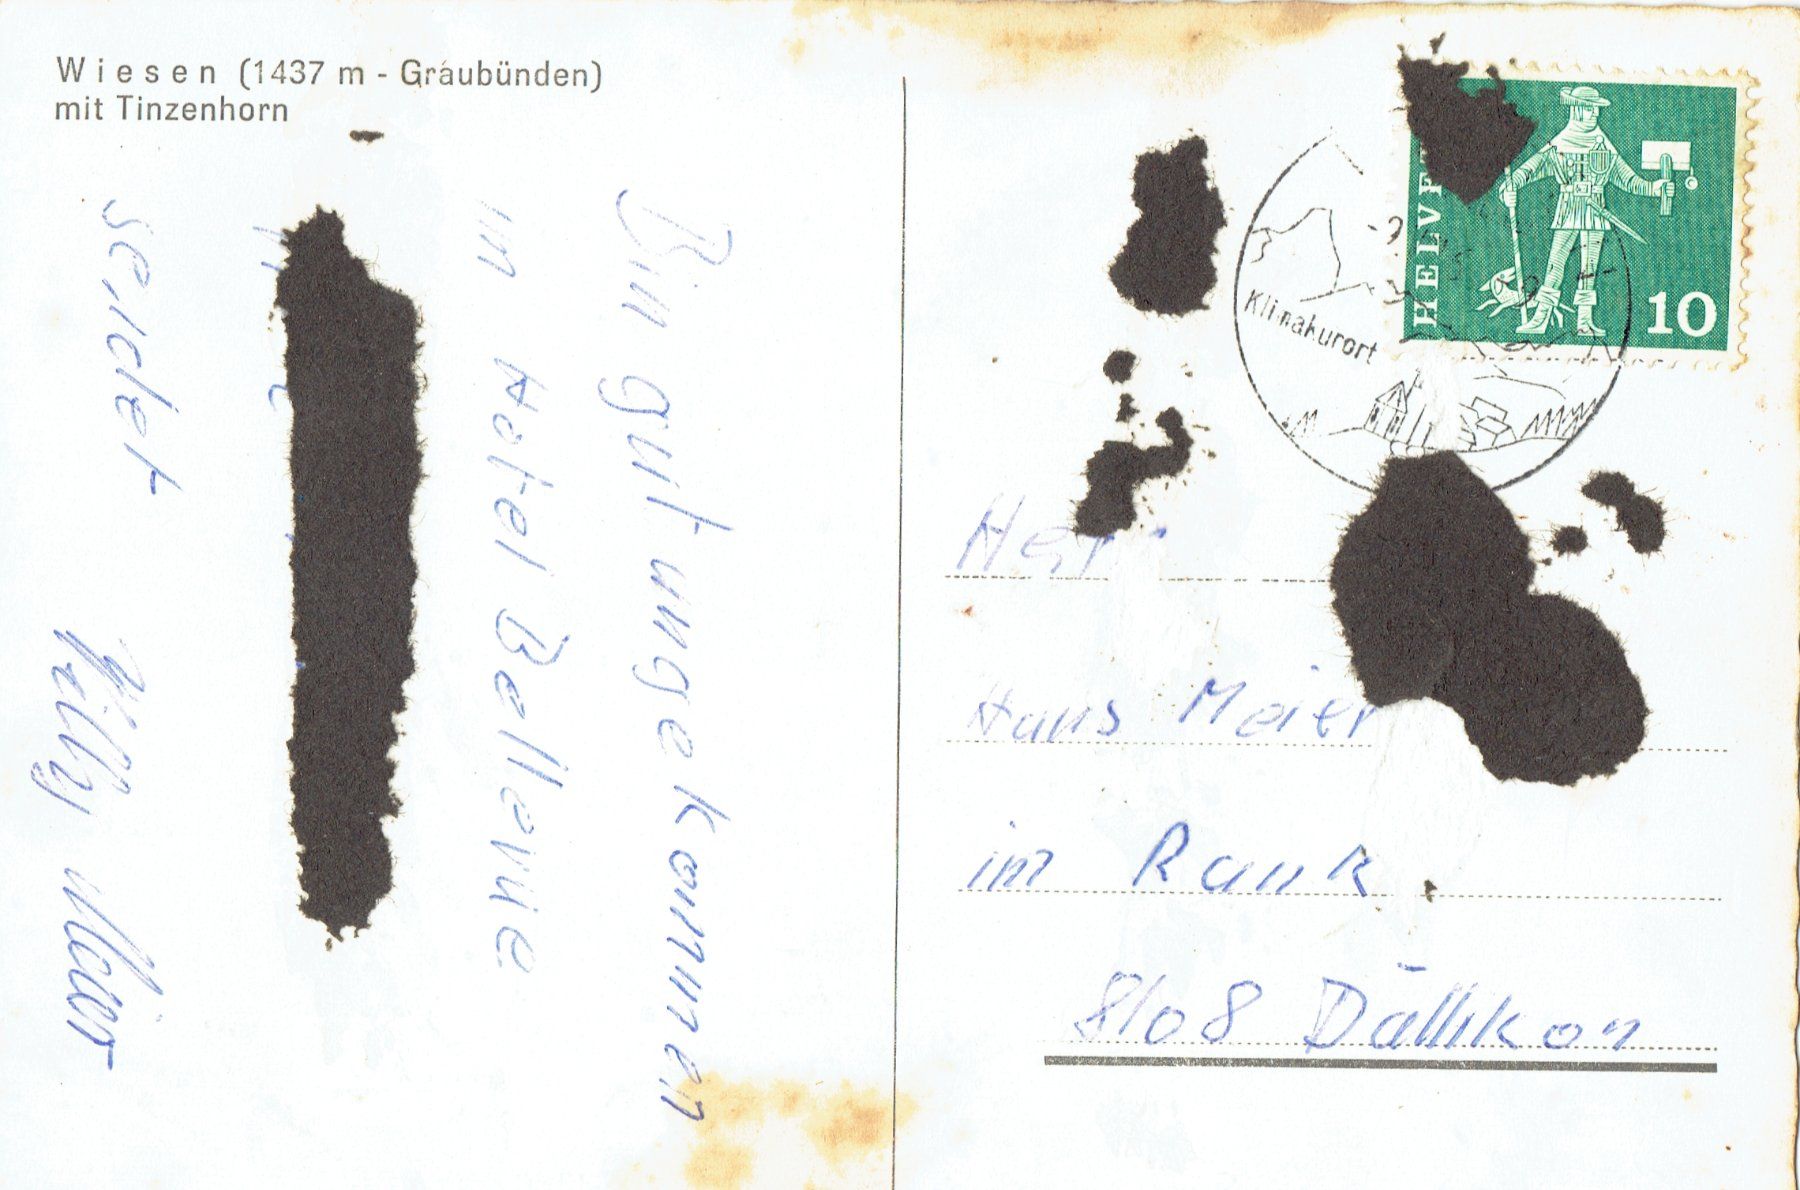 Wiesen (1437 m - Graubünden)
mit Tinzenhorn
Bin gut angekommen
im Hotel Bellevüe
sendet
Willy Meier
HELVE
10
Klimakurort
Herr
Hans Meier
im Rank
8108 Dällikon